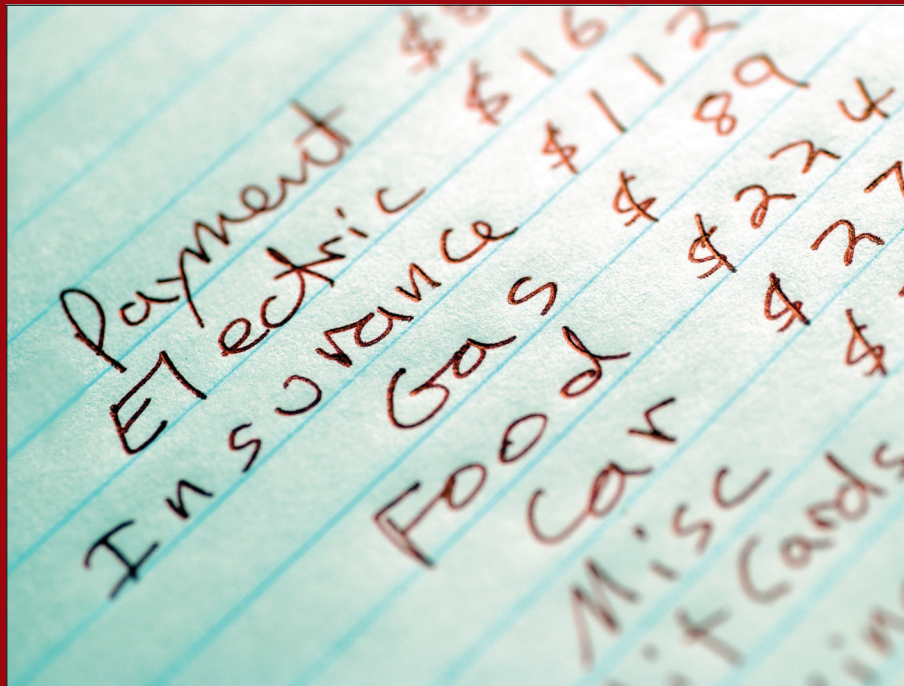 Payment $8
Electric $16
Insurance $112
Gas $89
Food $224
Car $27
Misc $
it Cards